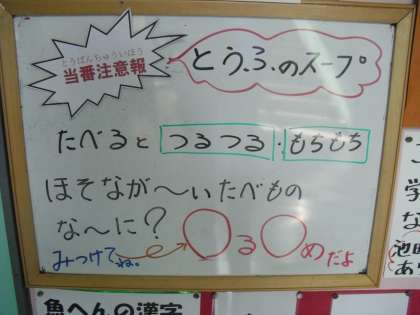 とうばんちゅういほう
当番注意報
とうふのスープ
たべると つるつる・もちもち
ほそなが〜いたべもの
な〜に?
みつけてね。
○る○めだよ
魚へんの漢字
学
な
池
あ